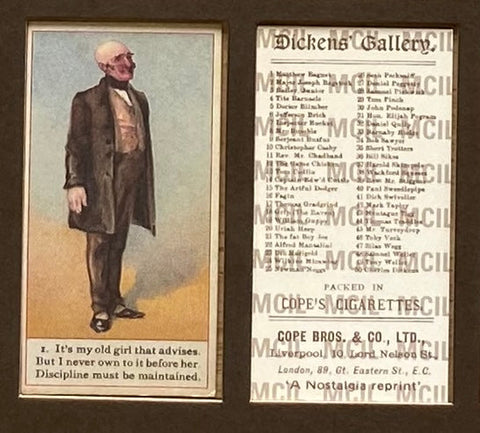 1. It's my old girl that advises.
But I never own to it before her
Discipline must be maintained.
Dickens' Gallery.
1 Matthew Bagnet
2 Major Joseph Bagstock
3 Bailey Junior
4 Tite Barnacle
5 Doctor Blimber
6 Jefferson Brick
7 Inspector Bucket
8 Mr. Bumble
9 Serjeant Buzfuz
10 Christopher Casby
11 Rev. Mr. Chadband
12 The Game Chicken
13 Tom Codlin
14 Captain Edw'd Cuttle
15 The Artful Dodger
16 Fagin
17 Thomas Gradgrind
19 William Guppy
20 Uriah Heep
21 The fat Boy Joe
22 Alfred Mantalini
23 Dr. Marigold
24 Wilkins Micawber
25 Newman Noggs
26 Seth Pecksniff
27 Daniel Peggotty
28 Samuel Pickwick
29 Tom Pinch
30 John Podsnap
31 Hon. Elijah Pogram
32 Daniel Quilp
33 Barnaby Rudge
34 Bob Sawyer
36 Bill Sikes
37 Harold Skimpole
38 Wackford Squeers
39 Rev. Mr. Stiggins
40 Paul Sweedlepipe
41 Dick Swiveller
42 Mark Tapley
43 Montague Tigg
45 Mr. Turveydrop
46 Toby Veck
47 Silas Wegg
48 Samuel Weller
49 Tony Weller
50 Charles Dickens
PACKED IN
COPE'S CIGARETTES
COPE BROS. & CO., LTD.,
Liverpool, 10, Lord Nelson St.,
London, 89, Gt. Eastern St., E.C.
'A Nostalgia reprint'
MCIL MCIL MCIL